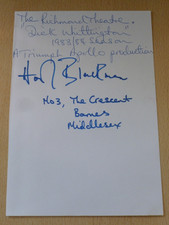 The Richmond Theatre.
"Dick Whittington"
1988/88 Season
A Triumph Apollo production
Blackman
No3, The Crescent
Barnes
Middlesex